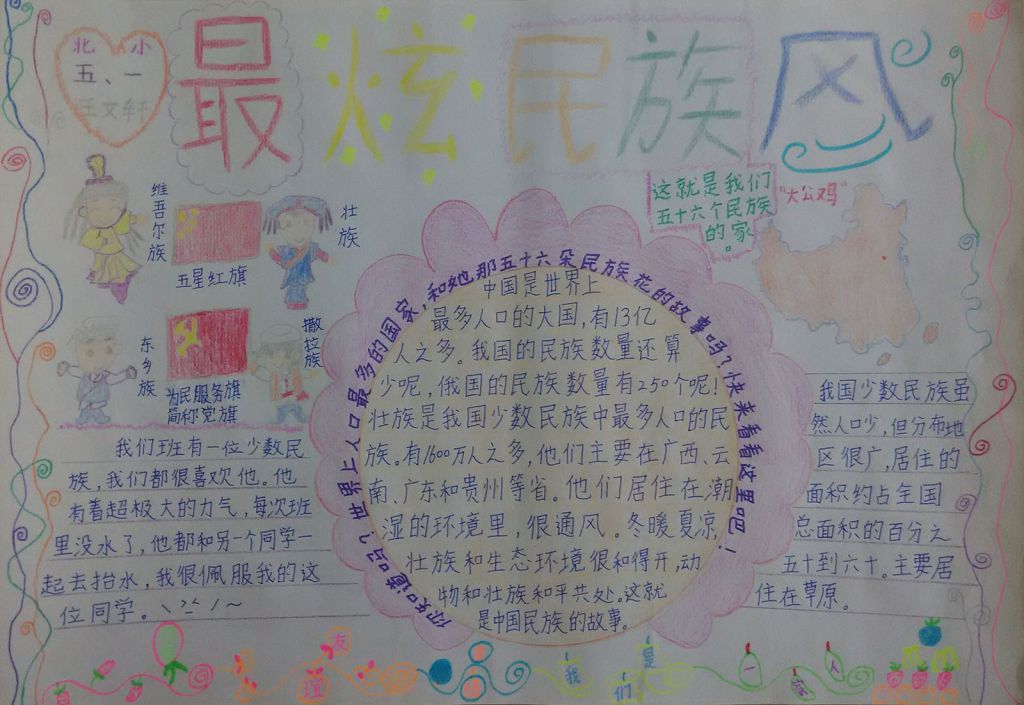 北小
五、一
王文轩
最炫民族风
维吾尔族
五星红旗
壮族
东乡族
为民服务旗
简称党旗
撒拉族
这就是我们
五十六个民族
的家。
"大公鸡"
你知道吗?世界上人口最多的国家,和她那五十六朵民族花的故事吗?快来看看这里吧!
中国是世界上
最多人口的大国,有13亿
人之多。我国的民族数量还算
少呢,俄国的民族数量有250个呢!
壮族是我国少数民族中最多人口的民
族。有1600万人之多,他们主要在广西、云
南、广东和贵州等省。他们居住在潮
湿的环境里,很通风。冬暖夏凉,
壮族和生态环境很和得开,动
物和壮族和平共处。这就
是中国民族的故事。
我们班有一位少数民
族,我们都很喜欢他。他
有着超极大的力气,每次班
里没水了,他都和另个同学一
起去抬水,我很佩服我的这
位同学。
我国少数民族虽
然人口少,但分布地
区很广,居住的
面积约占全国
总面积的百分之
五十到六十。主要居
住在草原。
友
谊
我
们
是
一
家
人